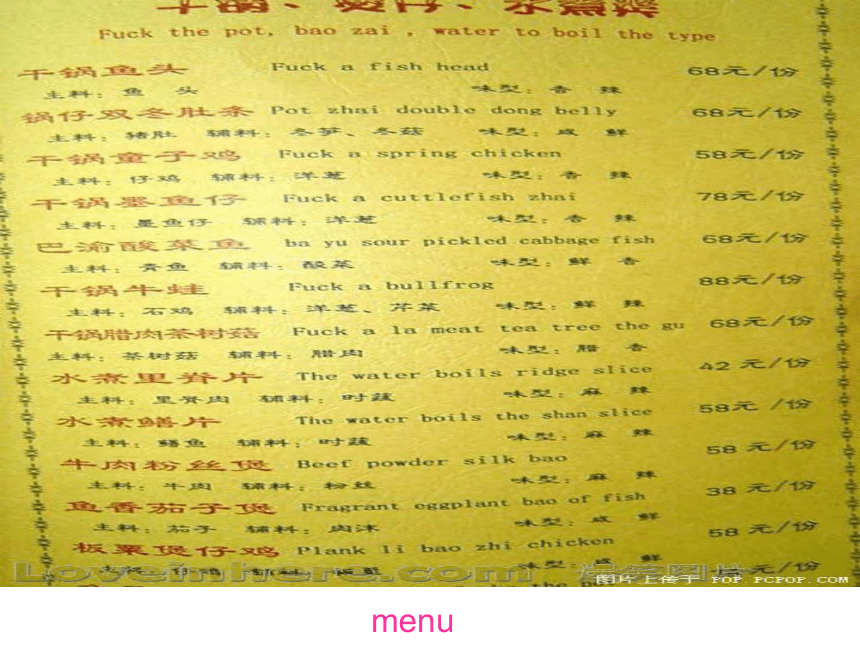 干锅、煲仔、水煮类
Fuck the pot, bao zai , water to boil the type
干锅鱼头 Fuck a fish head 68元/份
主料：鱼 头 味型：香 辣
锅仔双冬肚条 Pot zhai double dong belly 68元/份
主料：猪肚 辅料：冬笋、冬菇 味型：咸 鲜
干锅童子鸡 Fuck a spring chicken 58元/份
主料：仔鸡 辅料：洋葱 味型：香 辣
干锅墨鱼仔 Fuck a cuttlefish zhai 78元/份
主料：墨鱼仔 辅料：洋葱 味型：香 辣
巴渝酸菜鱼 ba yu sour pickled cabbage fish 68元/份
主料：青鱼 辅料：酸菜 味型：鲜 香
干锅牛蛙 Fuck a bullfrog 88元/份
主料：石鸡 辅料：洋葱、芹菜 味型：鲜 辣
干锅腊肉茶树菇 Fuck a la meat tea tree the gu 68元/份
主料：茶树菇 辅料：腊肉 味型：腊 香
水煮里脊片 The water boils ridge slice 42 元/份
主料：里脊肉 辅料：时蔬 味型：麻 辣
水煮鳝片 The water boils the shan slice 58元 /份
主料：鳝鱼 辅料：时蔬 味型：麻 辣
牛肉粉丝煲 Beef powder silk bao 58 元/份
主料：牛肉 辅料：粉丝 味型：麻 辣
鱼香茄子煲 Fragrant eggplant bao of fish 38 元/份
主料：茄子 辅料：肉沫 味型：咸 鲜
板栗煲仔鸡 Plank li bao zhi chicken 58 元/份
味型：咸 鲜
Loveinhere.com
图片上传于 POP.PCPOP.COM
menu